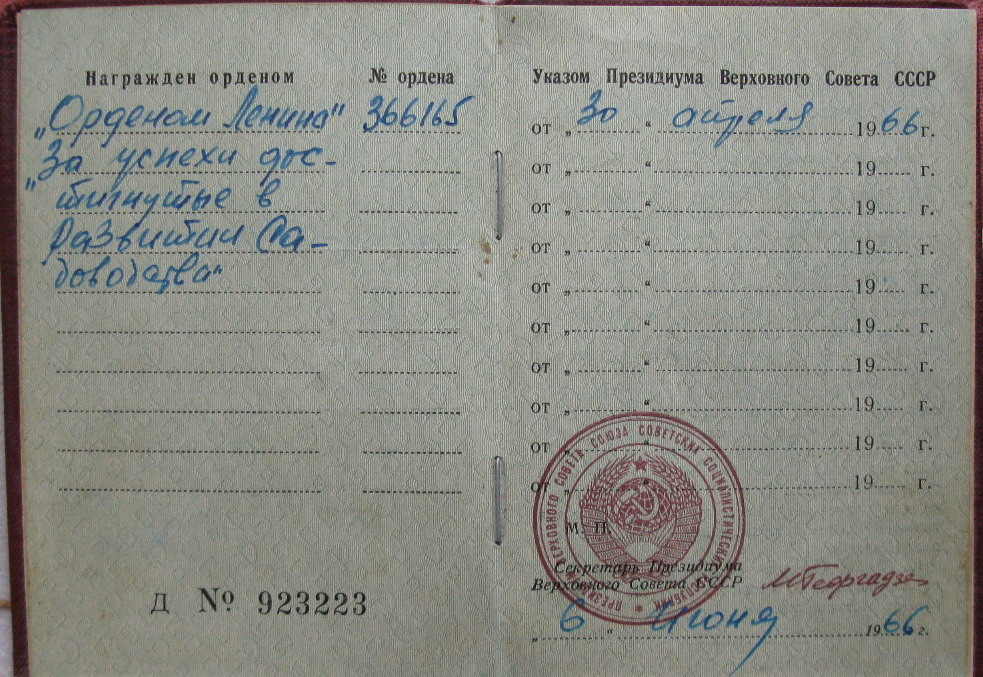 Награжден орденом № ордена
„Орденом Ленина" 366165
„За успехи дос-
тигнутые в
развитии Са-
доводства"
Д № 923223
Указом Президиума Верховного Совета СССР
от „ 30 “ апреля 1966 г.
от „ “ 19 г.
от „ “ 19 г.
от „ “ 19 г.
от „ “ 19 г.
от „ “ 19 г.
от „ “ 19 г.
от „ “ 19 г.
от „ “ 19 г.
от „ “ 19 г.
ПРЕЗИДИУМ ВЕРХОВНОГО СОВЕТА СОЮЗА СОВЕТСКИХ СОЦИАЛИСТИЧЕСКИХ РЕСПУБЛИК
М. П.
Секретарь Президиума
Верховного Совета СССР МГеоргадзе
„ 6 “ Июня 1966 г.